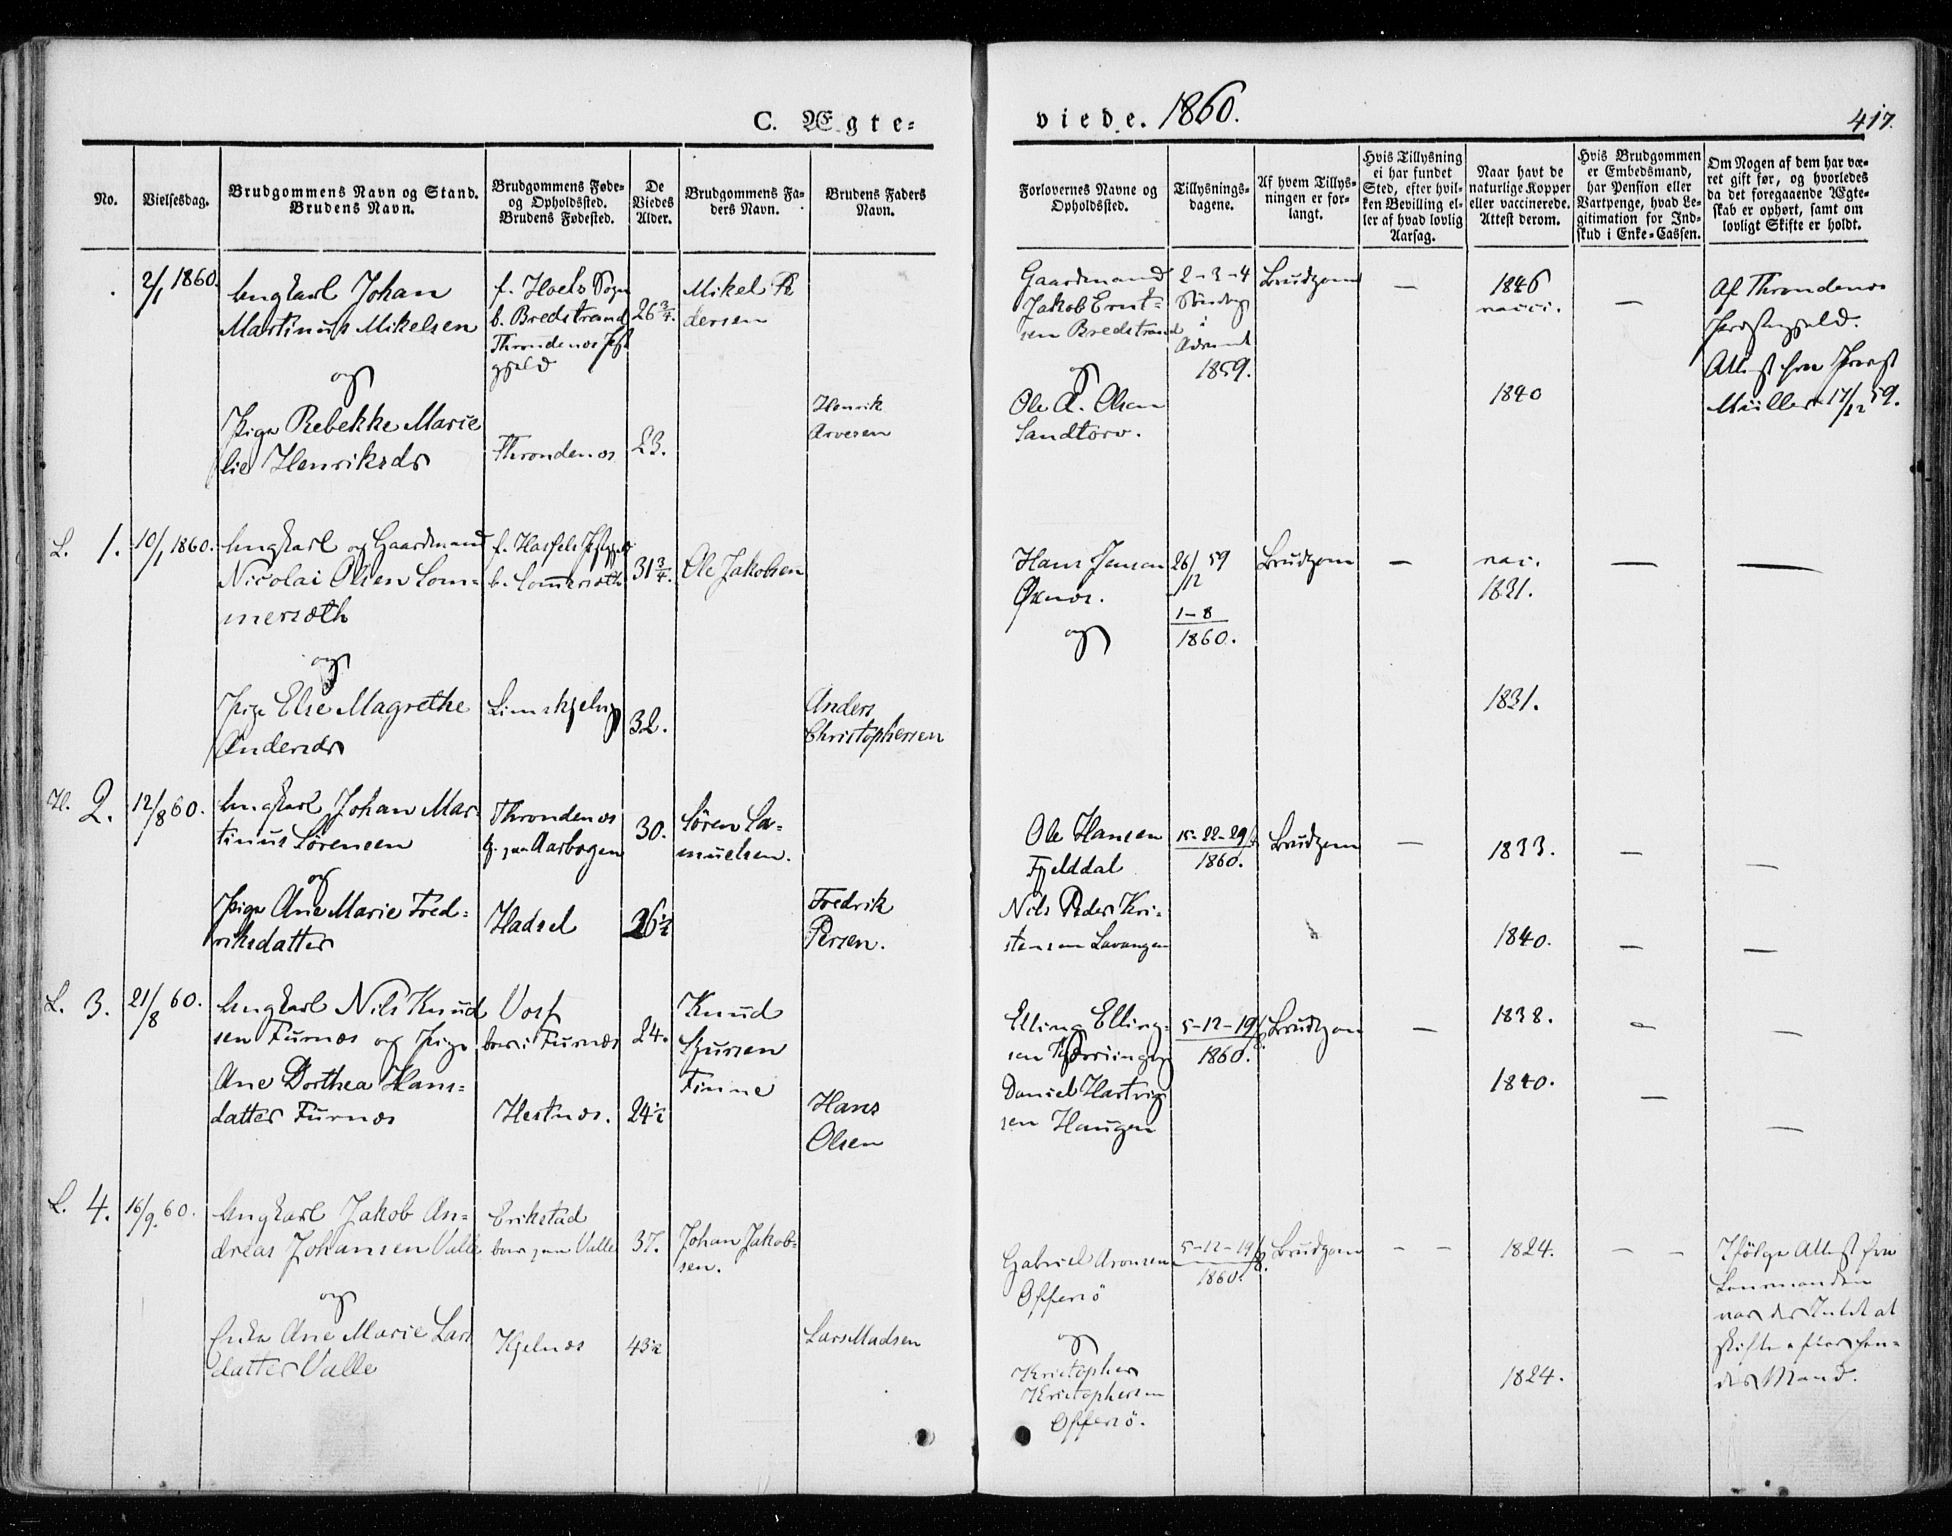 C. Ægte-
viede. 1860.
417.
No.
Vielsesdag.
Brudgommens Navn og Stand.
Brudens Navn.
Brudgommens Føde-
og Opholdssted.
Brudens Fødested.
De
Viedes
Alder.
Brudgommens Fa-
ders Navn.
Brudens Faders
Navn.
Forlovernes Navne og
Opholdssted.
Tillysnings-
dagene.
Af hvem Tillys-
ningen er for-
langt.
Hvis Tillysning
ei har fundet
Sted, efter hvil-
ken Bevilling el-
ler af hvad lovlig
Aarsag.
Naar havt de
naturlige Kopper
eller vaccinerede.
Attest derom.
Hvis Brudgommen
er Embedsmand,
har Pension eller
Vartpenge, hvad Le-
gitimation for Ind-
skud i Enke-Cassen.
Om Nogen af dem har væ-
ret gift før, og hvorledes
da det foregaaende Ægte-
skab er ophørt, samt om
lovligt Skifte er holdt.
2/1 1860.
Ungkarl Johan
Martinus Mikelsen
og
Pige Rebekke Marie
lie Henriksdr
b. Bredstrand
Throndenæs
gjeld
Throndenæs
26 3/4.
23.
Mikel Pe
dersen
Henrik
Arvesen
Gaardmand
Jakob Ernt-
sen Bredstrand
og
Ole A. Olsen
Sandtorv.
2-3-4
Søndag
i
Advent
1859.
Brudgom
—
1846
vacci.
1840
—
Af Throndenæs
Præstegjeld.
Attest fra Provst
Müller 17/12 59.
L. 1.
10/1 1860.
Ungkarl og Gaardmand
Nicolai Olsen Som-
mersæth
og
Pige Else Magrethe
Andersdr
b. Sommersæth
Limskjelvig
31 3/4.
32.
Ole Jakobsen
Anders
Christophersen
Hans Jensen
Øxnæs.
og
26/12 59
1-8
1860.
Brudgom
—
vac.
1831.
1831.
—
—
H. 2.
12/8 60.
Ungkarl Johan Mar-
tinus Sørensen
og
Pige Ane Marie Fred-
riksdatter
Throndenæs
b. paa Aarbogen
Hadsel
30.
26 1/2
Søren Sa-
muelsen.
Fredrik
Persen.
Ole Hansen
Fjelddal
Nils Peder Kri-
stensen Lavangen
15-22-29/7
1860.
Brudgom
—
1833.
1840.
—
—
—
—
L. 3.
21/8 60.
Ungkarl Nils Knud
sen Furnæs og Pige
Ane Dorthea Hans-
datter Furnæs
Voss
boer i Furnæs
Hestnæs.
24.
24 1/2
Knud
Sjursen
Finne
Hans
Olsen
Elling Elling-
sen
Daniel Hartvig
sen Haugen
5-12-19/8.
1860.
Brudgom
—
1838.
1840.
—
—
—
—
L. 4.
16/9. 60.
Ungkarl Jakob An-
dreas Johansen Valle
og
Enke Ane Marie Lars
datter Valle
Erikstad
boer paa Valle
Kjelnæs
37.
43 1/2
Johan Jakob-
sen.
Lars Madsen
Gabriel Aronsen
Offersö
og
Kristopher
Kristophersen
Offersö.
5-12-19/8.
1860.
Brudgom
— —
1824.
1824.
— —
Ifölge Attest fra
Lensmanden
var der Intet at
skifte efter hen-
des Mand.